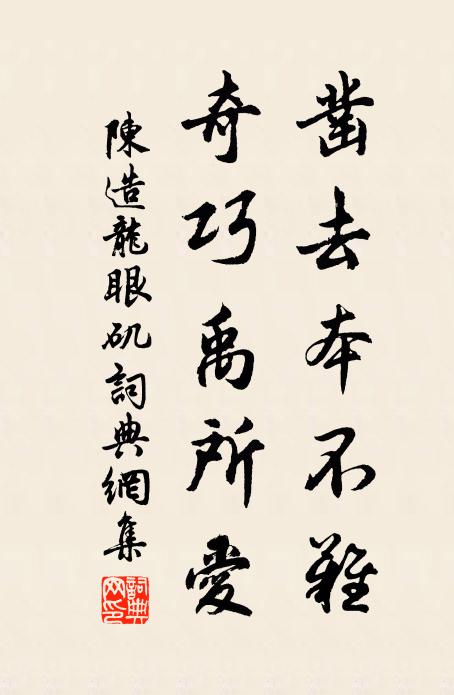 凿去本不難
奇巧禹所愛
陳造龍眼矶詞典網集
詞典网印